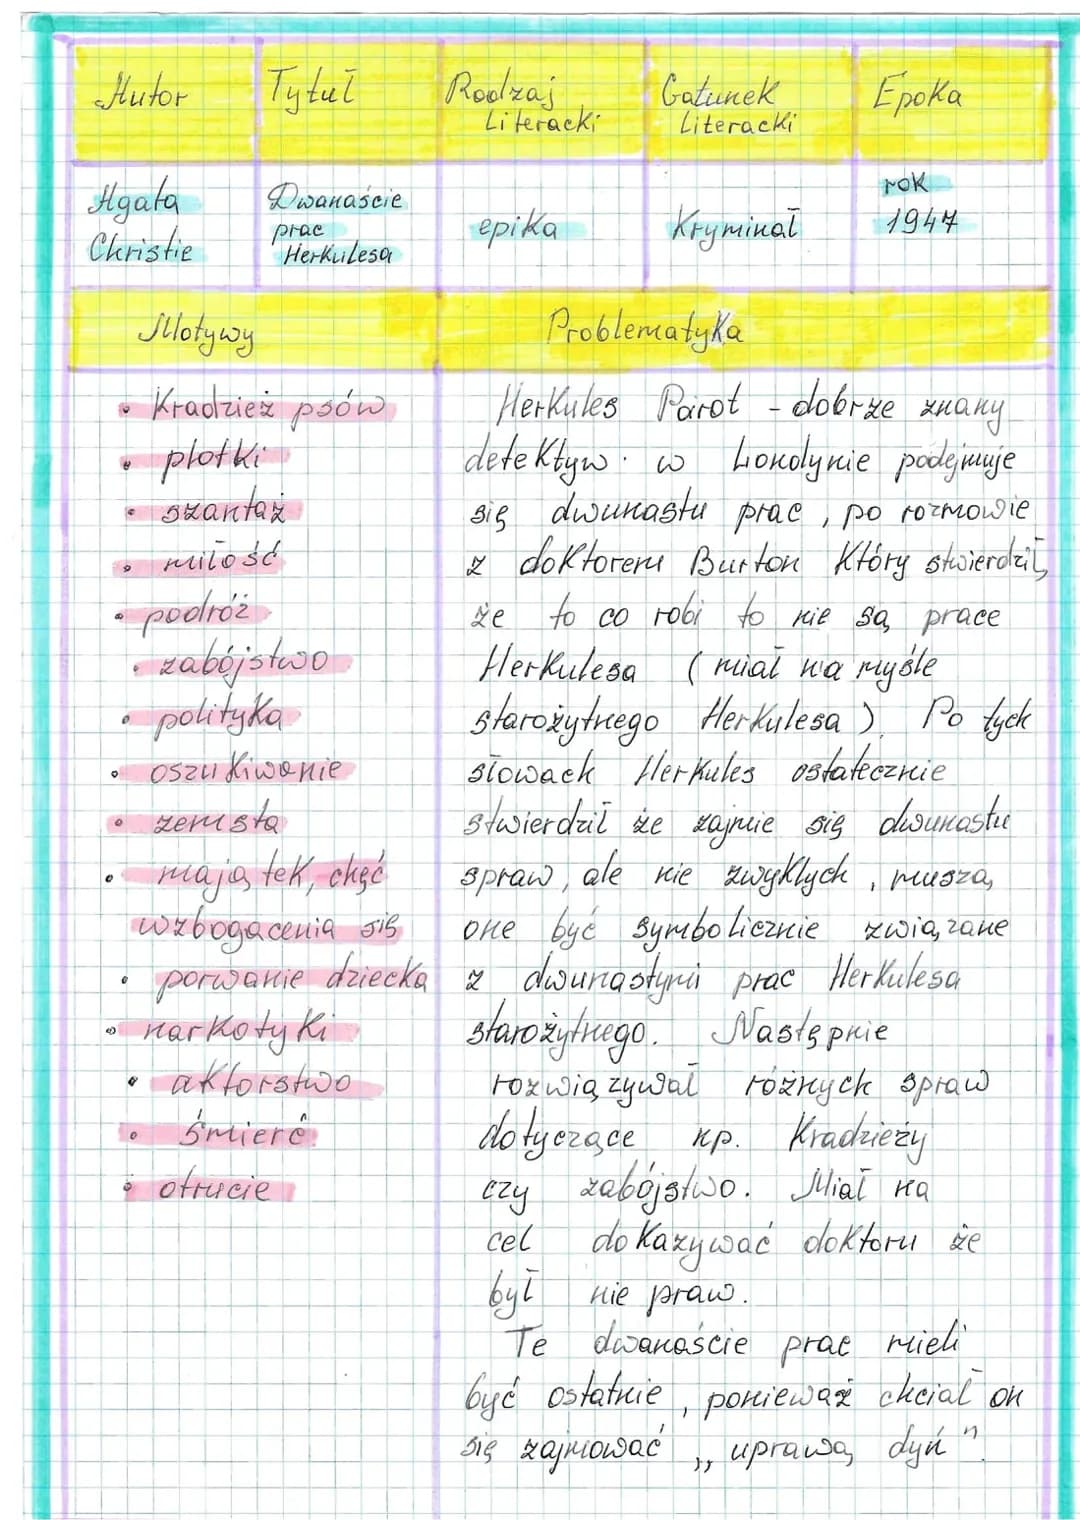 Autor Tytuł Rodzaj Literacki Gatunek Literacki Epoka
Agata Christie Dwanaście prac Herkulesa epika Kryminał rok 1947
Motywy
• Kradzież psów
• plotki
• szantaż
• miłość
• podróż
• zabójstwo
• polityka
• oszukiwanie
• zemsta
• majątek, chęć
wzbogacenia się
• porwanie dziecka
• narkotyki
• aktorstwo
• śmierć
• otrucie
Problematyka
Herkules Parot - dobrze znany
detektyw. w Londynie podejmuje
się dwunastu prac, po rozmowie
z doktorem Burton Który stwierdził,
że to co robi to nie są prace
Herkulesa (miał na myśle
starożytnego Herkulesa). Po tych
słowach Herkules ostatecznie
stwierdził że zajmie się dwunastu
spraw, ale nie zwykłych, muszą
one być symbolicznie związane
z dwunastymi prac Herkulesa
starożytnego. Następnie
rozwiązywał różnych spraw
dotyczące np. Kradzieży
czy zabójstwo. Miał na
cel dokazywać doktoru że
był nie praw.
Te dwanaście prac mieli
być ostatnie, ponieważ chciał on
się zajmować „uprawą dyń"